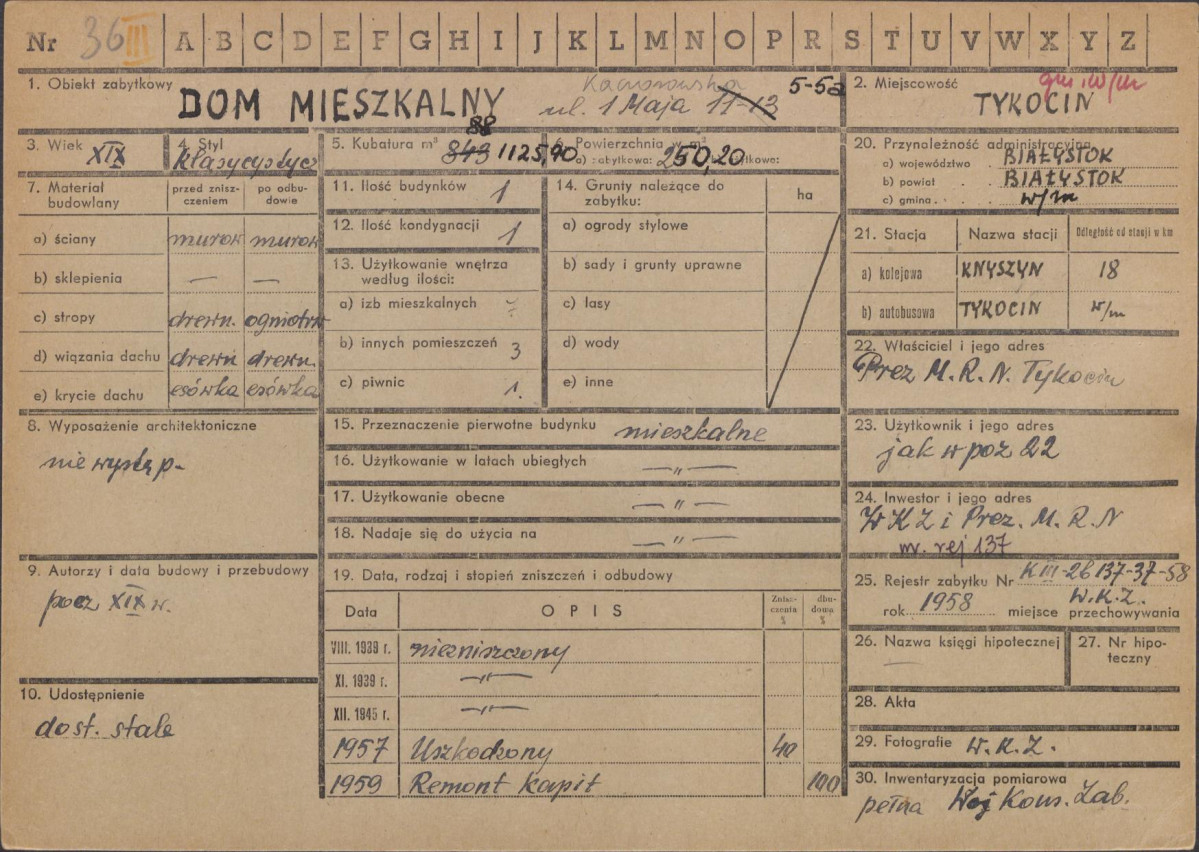 Nr 36 III A B C D E F G H I J K L M N O P R S T U V W X Y Z
1. Obiekt zabytkowy
DOM MIESZKALNY
Kaczorowska
ul. 1 Maja 11-13 5-5a
2. Miejscowość
gm. w/m
TYKOCIN
3. Wiek
XIX
4. Styl
klasycystycz
5. Kubatura m³
843 88 1125,90
6. Powierzchnia w m²
a) zabytkowa: 250,20 użytkowe:
7. Materiał budowlany
przed zniszczeniem
po odbudowie
a) ściany murow murow
b) sklepienia — —
c) stropy drewn. ogniotrw
d) wiązania dachu drewn drewn.
e) krycie dachu esówka esówka
8. Wyposażenie architektoniczne
nie występ-
9. Autorzy i data budowy i przebudowy
pocz XIX w.
10. Udostępnienie
dost. stale
11. Ilość budynków 1
12. Ilość kondygnacji 1
13. Użytkowanie wnętrza
według ilości:
a) izb mieszkalnych
b) innych pomieszczeń 3
c) piwnic 1.
14. Grunty należące do
zabytku:
ha
a) ogrody stylowe
b) sady i grunty uprawne
c) lasy
d) wody
e) inne
15. Przeznaczenie pierwotne budynku mieszkalne
16. Użytkowanie w latach ubiegłych —„—
17. Użytkowanie obecne —„—
18. Nadaje się do użycia na —„—
19. Data, rodzaj i stopień zniszczeń i odbudowy
Data OPIS Zniszczenia % dbudowa %
VIII. 1939 r. niezniszczony
XI. 1939 r. —„—
XII. 1945 r. —„—
1957 Uszkodzony 40
1959 Remont kapit 100
20. Przynależność administracyjna
a) województwo BIAŁYSTOK
b) powiat BIAŁYSTOK
c) gmina w/m
21. Stacja Nazwa stacji Odległość od stacji w km
a) kolejowa KNYSZYN 18
b) autobusowa TYKOCIN w/m
22. Właściciel i jego adres
Prez M. R. N. Tykocin
23. Użytkownik i jego adres
jak w poz 22
24. Inwestor i jego adres
W K Z i Prez. M. R. N
nr. rej 137
25. Rejestr zabytku Nr K III-2b 137-37-58
rok 1958 miejsce przechowywania W.K.Z.
26. Nazwa księgi hipotecznej
—
27. Nr hipoteczny
28. Akta
29. Fotografie W. K. Z.
30. Inwentaryzacja pomiarowa
pełna Woj Kons. Zab.